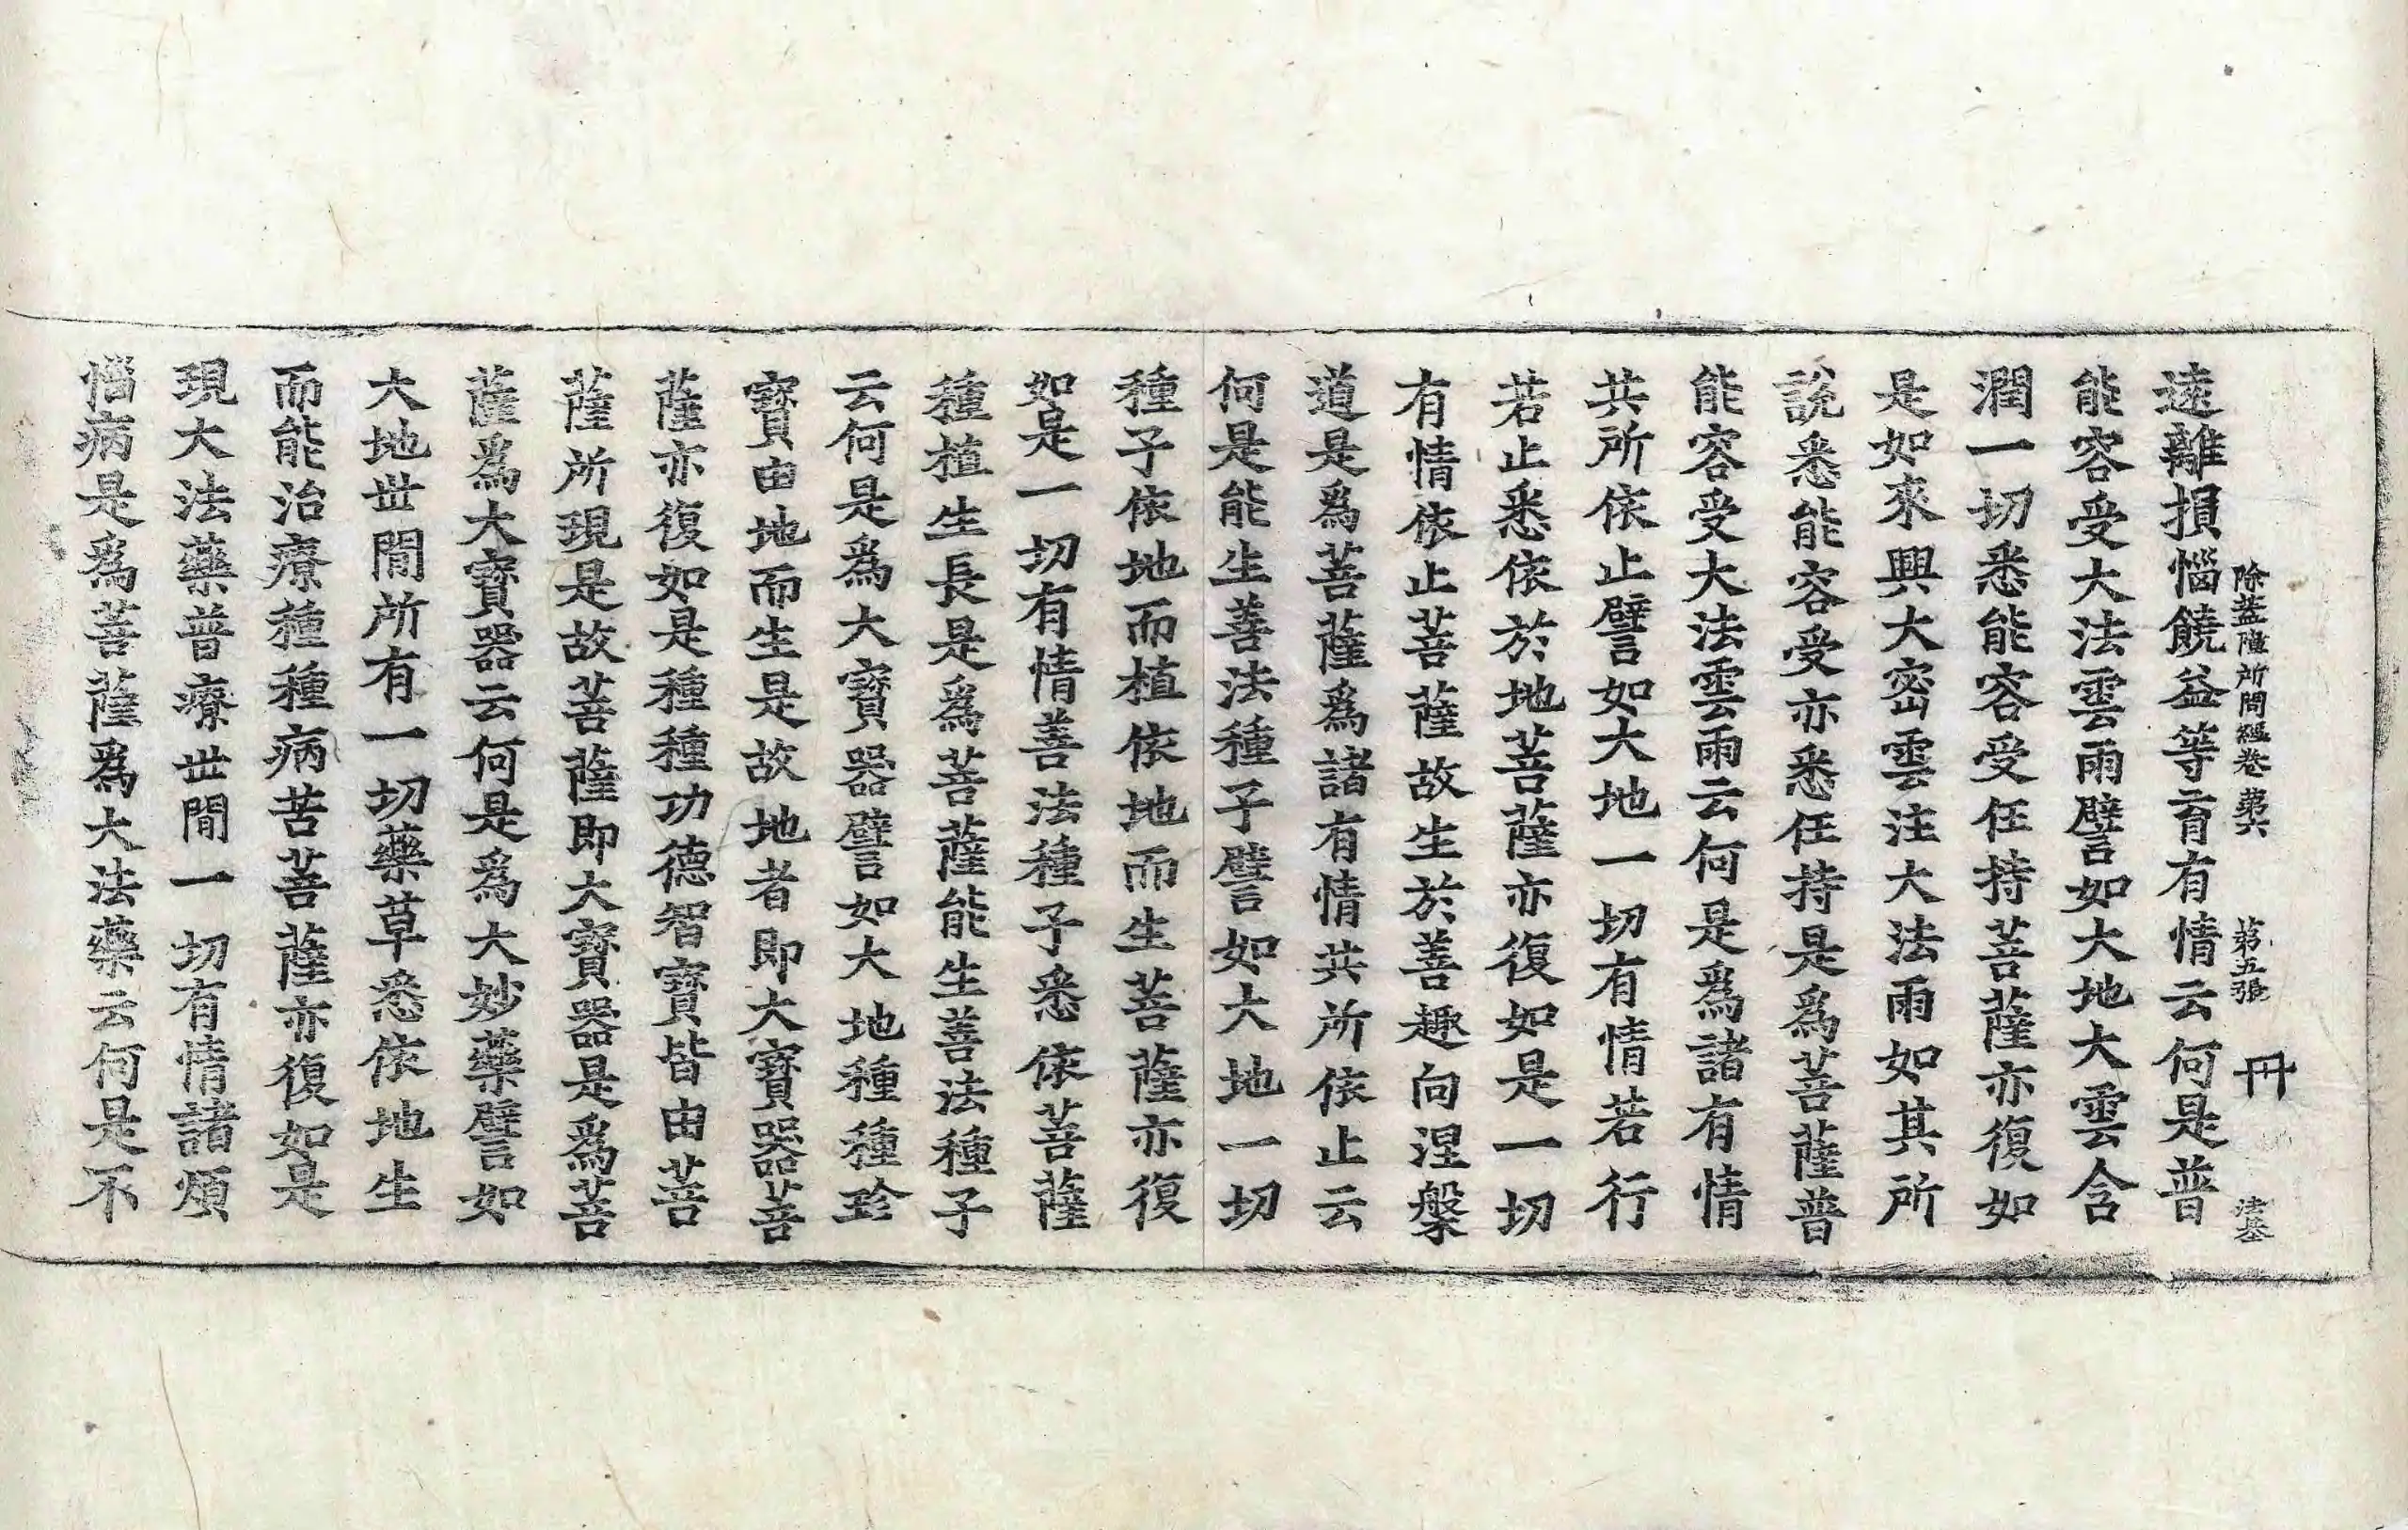 除蓋障所問經卷第六 第五張 冊 法基
遠離損惱饒益等育有情云何是普
能容受大法雲雨譬如大地大雲含
潤一切悉能容受任持菩薩亦復如
是如來興大密雲注大法雨如其所
說悉能容受亦悉任持是爲菩薩普
能容受大法雲雨云何是爲諸有情
共所依止譬如大地一切有情若行
若止悉依於地菩薩亦復如是一切
有情依止菩薩故生於善趣向涅槃
道是爲菩薩爲諸有情共所依止云
何是能生善法種子譬如大地一切
種子依地而植依地而生菩薩亦復
如是一切有情善法種子悉依菩薩
種植生長是爲菩薩能生善法種子
云何是爲大寶器譬如大地種種珎
寶由地而生是故地者即大寶器菩
薩亦復如是種種功德智寶皆由菩
薩所現是故菩薩即大寶器是爲菩
薩爲大寶器云何是爲大妙藥譬如
大地世閒所有一切藥草悉依地生
而能治療種種病苦菩薩亦復如是
現大法藥普療世閒一切有情諸煩
惱病是爲菩薩爲大法藥云何是不